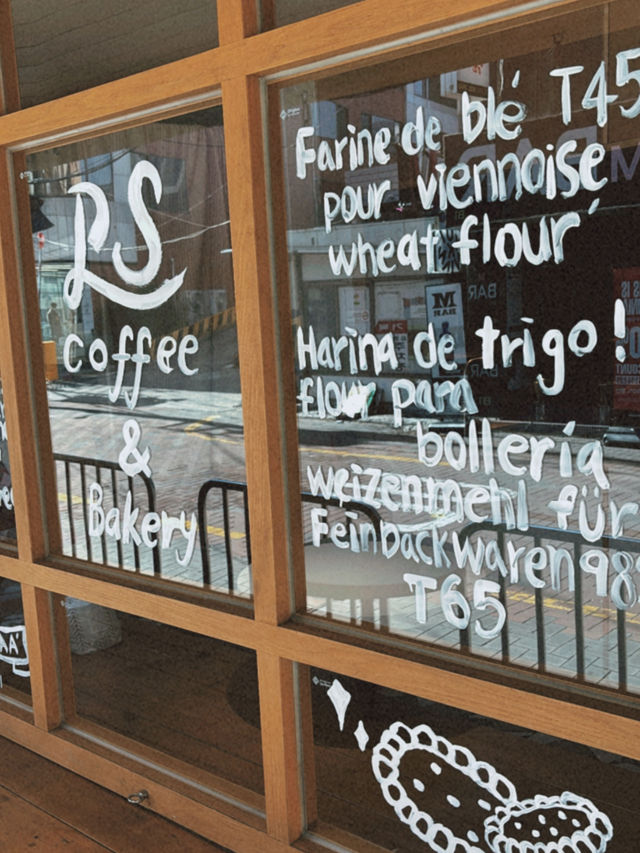 RS
coffee
&
Bakery
Farine de blé T45
pour viennoise
wheat flour
Harina de trigo !
flour para
bollería
weizenmehl für
Feinbackwaren 98
T65
M
BAR
BAR